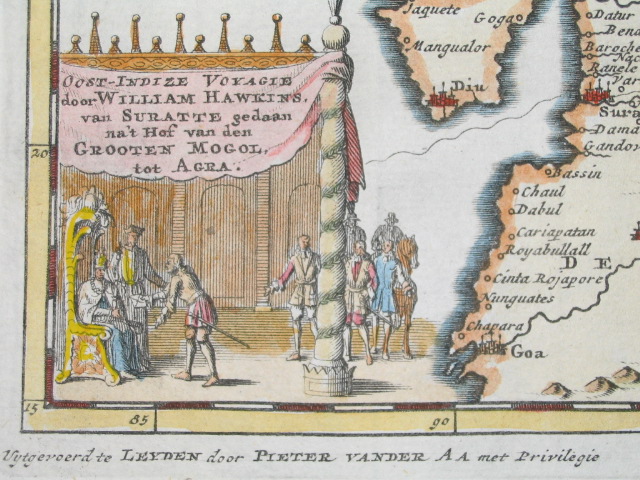 OOST-INDIZE VOYAGIE
door WILLIAM HAWKINS,
van SURATTE gedaan
na't Hof van den
GROOTEN MOGOL,
tot AGRA.
Jaquete
Goga
Mangualor
Diu
Datur
Bena
Baroche
Nac
Ranele
Var
Sura
Dama
Gandov
Bassin
Chaul
Dabul
Cariapatan
Royabullall
DE
Cinta Rojapore
Nunguates
Chapara
Goa
20
15
85
90
Uytgevoerd te LEYDEN door PIETER VANDER AA met Privilegie